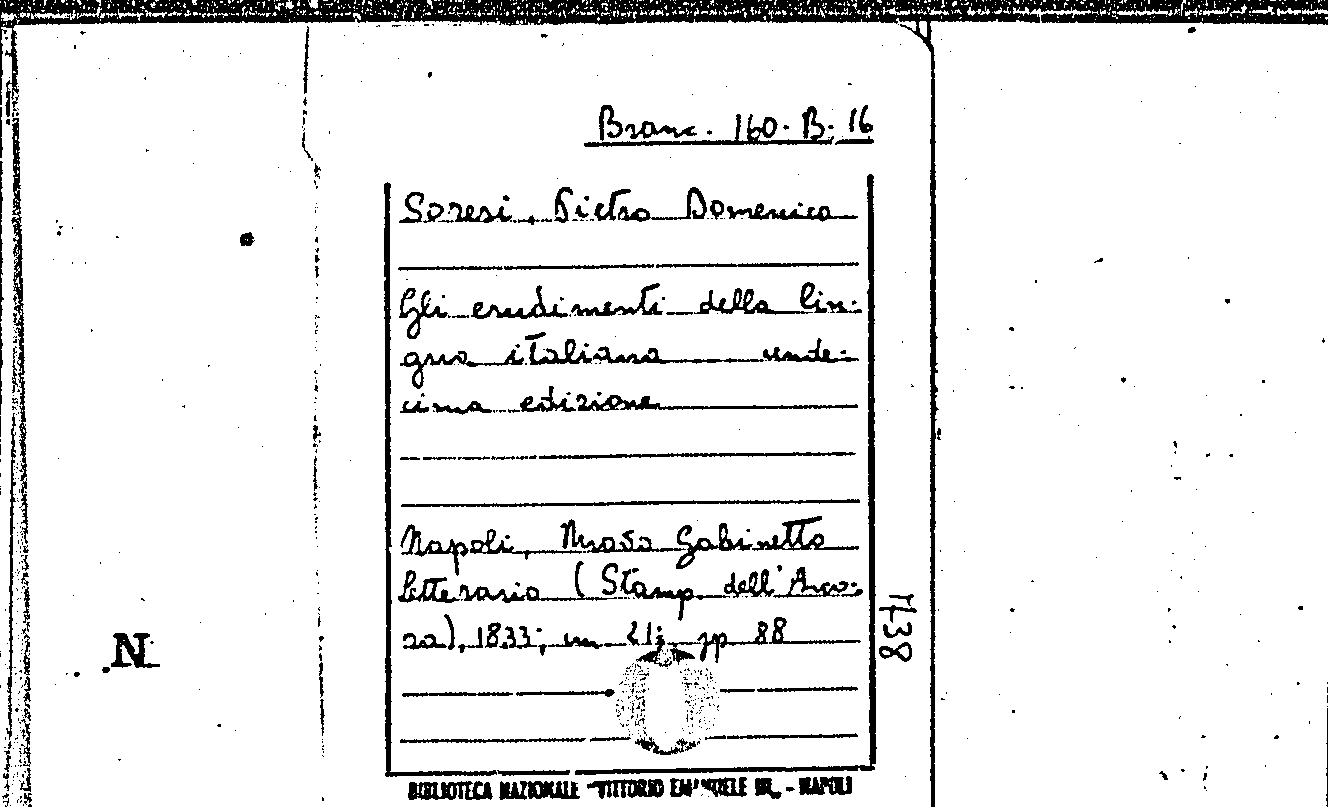 Branc. 160. B. 16
Soresi, Pietro Domenico
Gli erudimenti della lin-
gua italiana unde-
cima edizione
Napoli, Nuovo Gabinetto
letterario (Stamp. dell'Anco-
ra), 1833; in pp 88
7438
N
BIBLIOTECA NAZIONALE "VITTORIO EMANUELE III" - NAPOLI